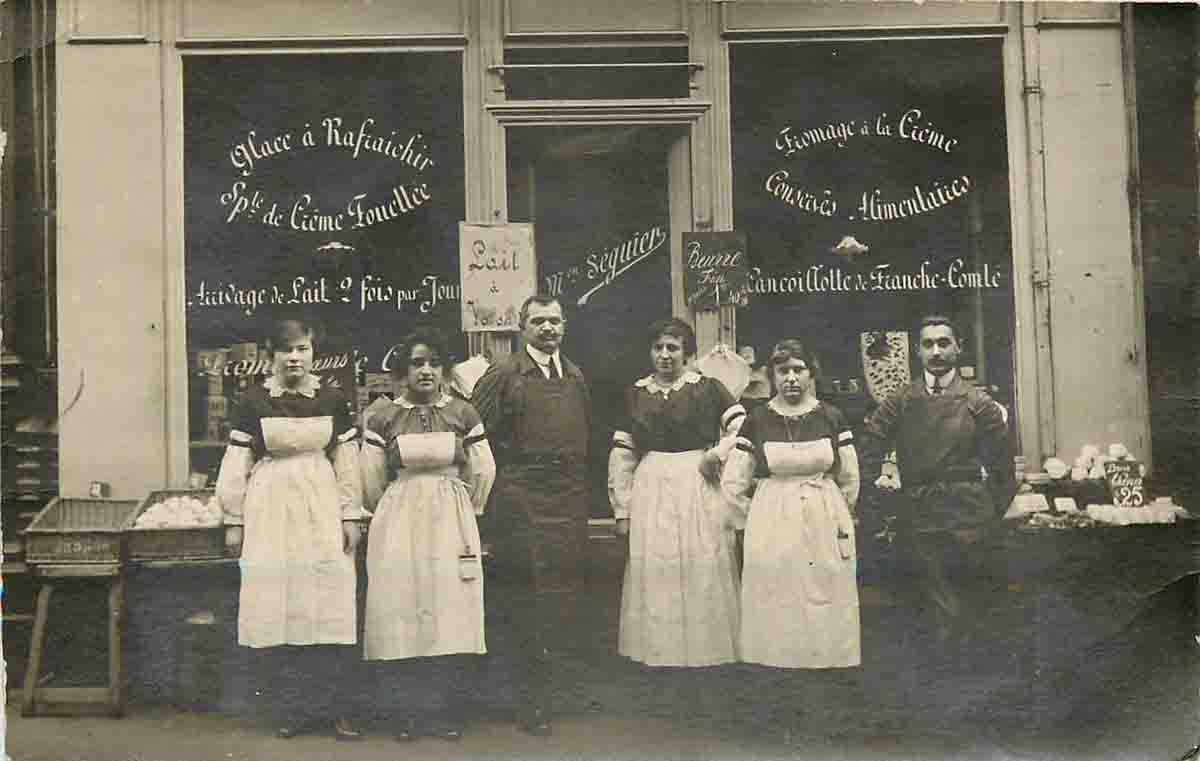 Glace à Rafraîchir
Spte de Crème Fouettée
Arrivage de Lait 2 fois par Jour
Lait
à
Mon Séguier
Beurre
Fromage à la Crème
Conserves Alimentaires
Cancoillotte de Franche-Comté
25